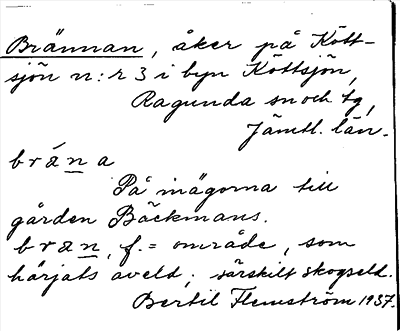 Brännan, åker på Kött-
sjön n:r 3 i byn Köttsjön,
Ragunda sn och tg,
Jämtl. län.
bræ̀na
På inägorna till
gården Bäckmans.
bræn, f. = område, som
härjats av eld; särskilt skogseld.
Bertil Flemström 1937.